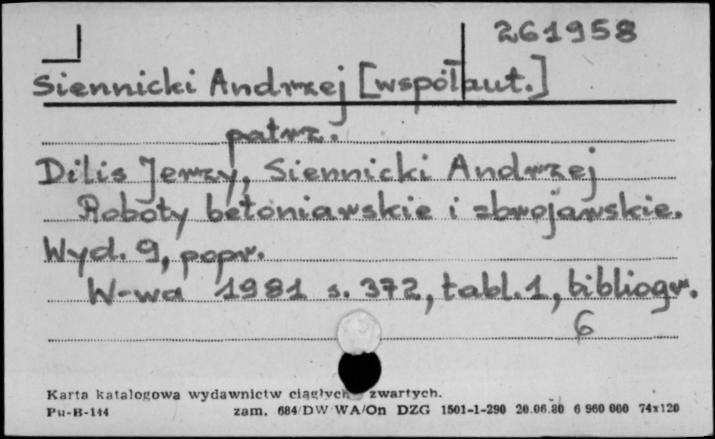 261958
Siennicki Andrzej [współaut.]
patrz.
Dilis Jerzy, Siennicki Andrzej
Roboty betoniarskie i zbrojarskie.
Wyd. 9, popr.
W-wa 1981 s. 372, tabl. 1, bibliogr.
6
Karta katalogowa wydawnictw ciągłych zwartych.
Pu-B-144 zam. 684/DW WA/On DZG 1501-1-290 20.06.80 6 960 000 74x120